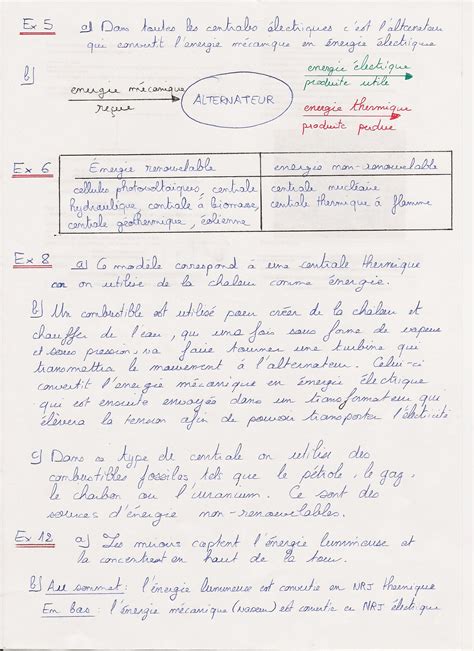 Ex 5 a) Dans toutes les centrales électriques c'est l'alternateur
qui convertit l'énergie mécanique en énergie électrique
b)
énergie mécanique
reçue
ALTERNATEUR
énergie électrique
produite utile
énergie thermique
produite perdue
Ex 6
Énergie renouvelable
énergies non-renouvelable
cellules photovoltaïques, centrale
hydraulique, centrale à biomasse,
centrale géothermique, éolienne
centrale nucléaire
centrale thermique à flamme
Ex 8 a) Ce modèle correspond à une centrale thermique
car on utilise de la chaleur comme énergie.
b) Un combustible est utilisé pour créer de la chaleur et
chauffer de l'eau, qui une fois sous forme de vapeur
et sous pression, va faire tourner une turbine qui
transmettra le mouvement à l'alternateur. Celui-ci
convertit l'énergie mécanique en énergie électrique
qui est ensuite envoyée dans un transformateur qui
élèvera la tension afin de pouvoir transporter l'électricité
c) Dans ce type de centrale on utilise des
combustibles fossiles tels que le pétrole, le gaz,
le charbon ou l'uranium. Ce sont des
sources d'énergie non-renouvelables.
Ex 12 a) Les miroirs captent l'énergie lumineuse et
la concentrent en haut de la tour.
b) Au sommet : l'énergie lumineuse est convertie en NRJ thermique
En bas : l'énergie mécanique (vapeur) est convertie en NRJ électrique